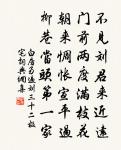 不見刘君来近遠
門前两度满枝花
朝来惆悵宣平過
柳巷當頭第一家
白居易過刘三十二故
宅詞典網集